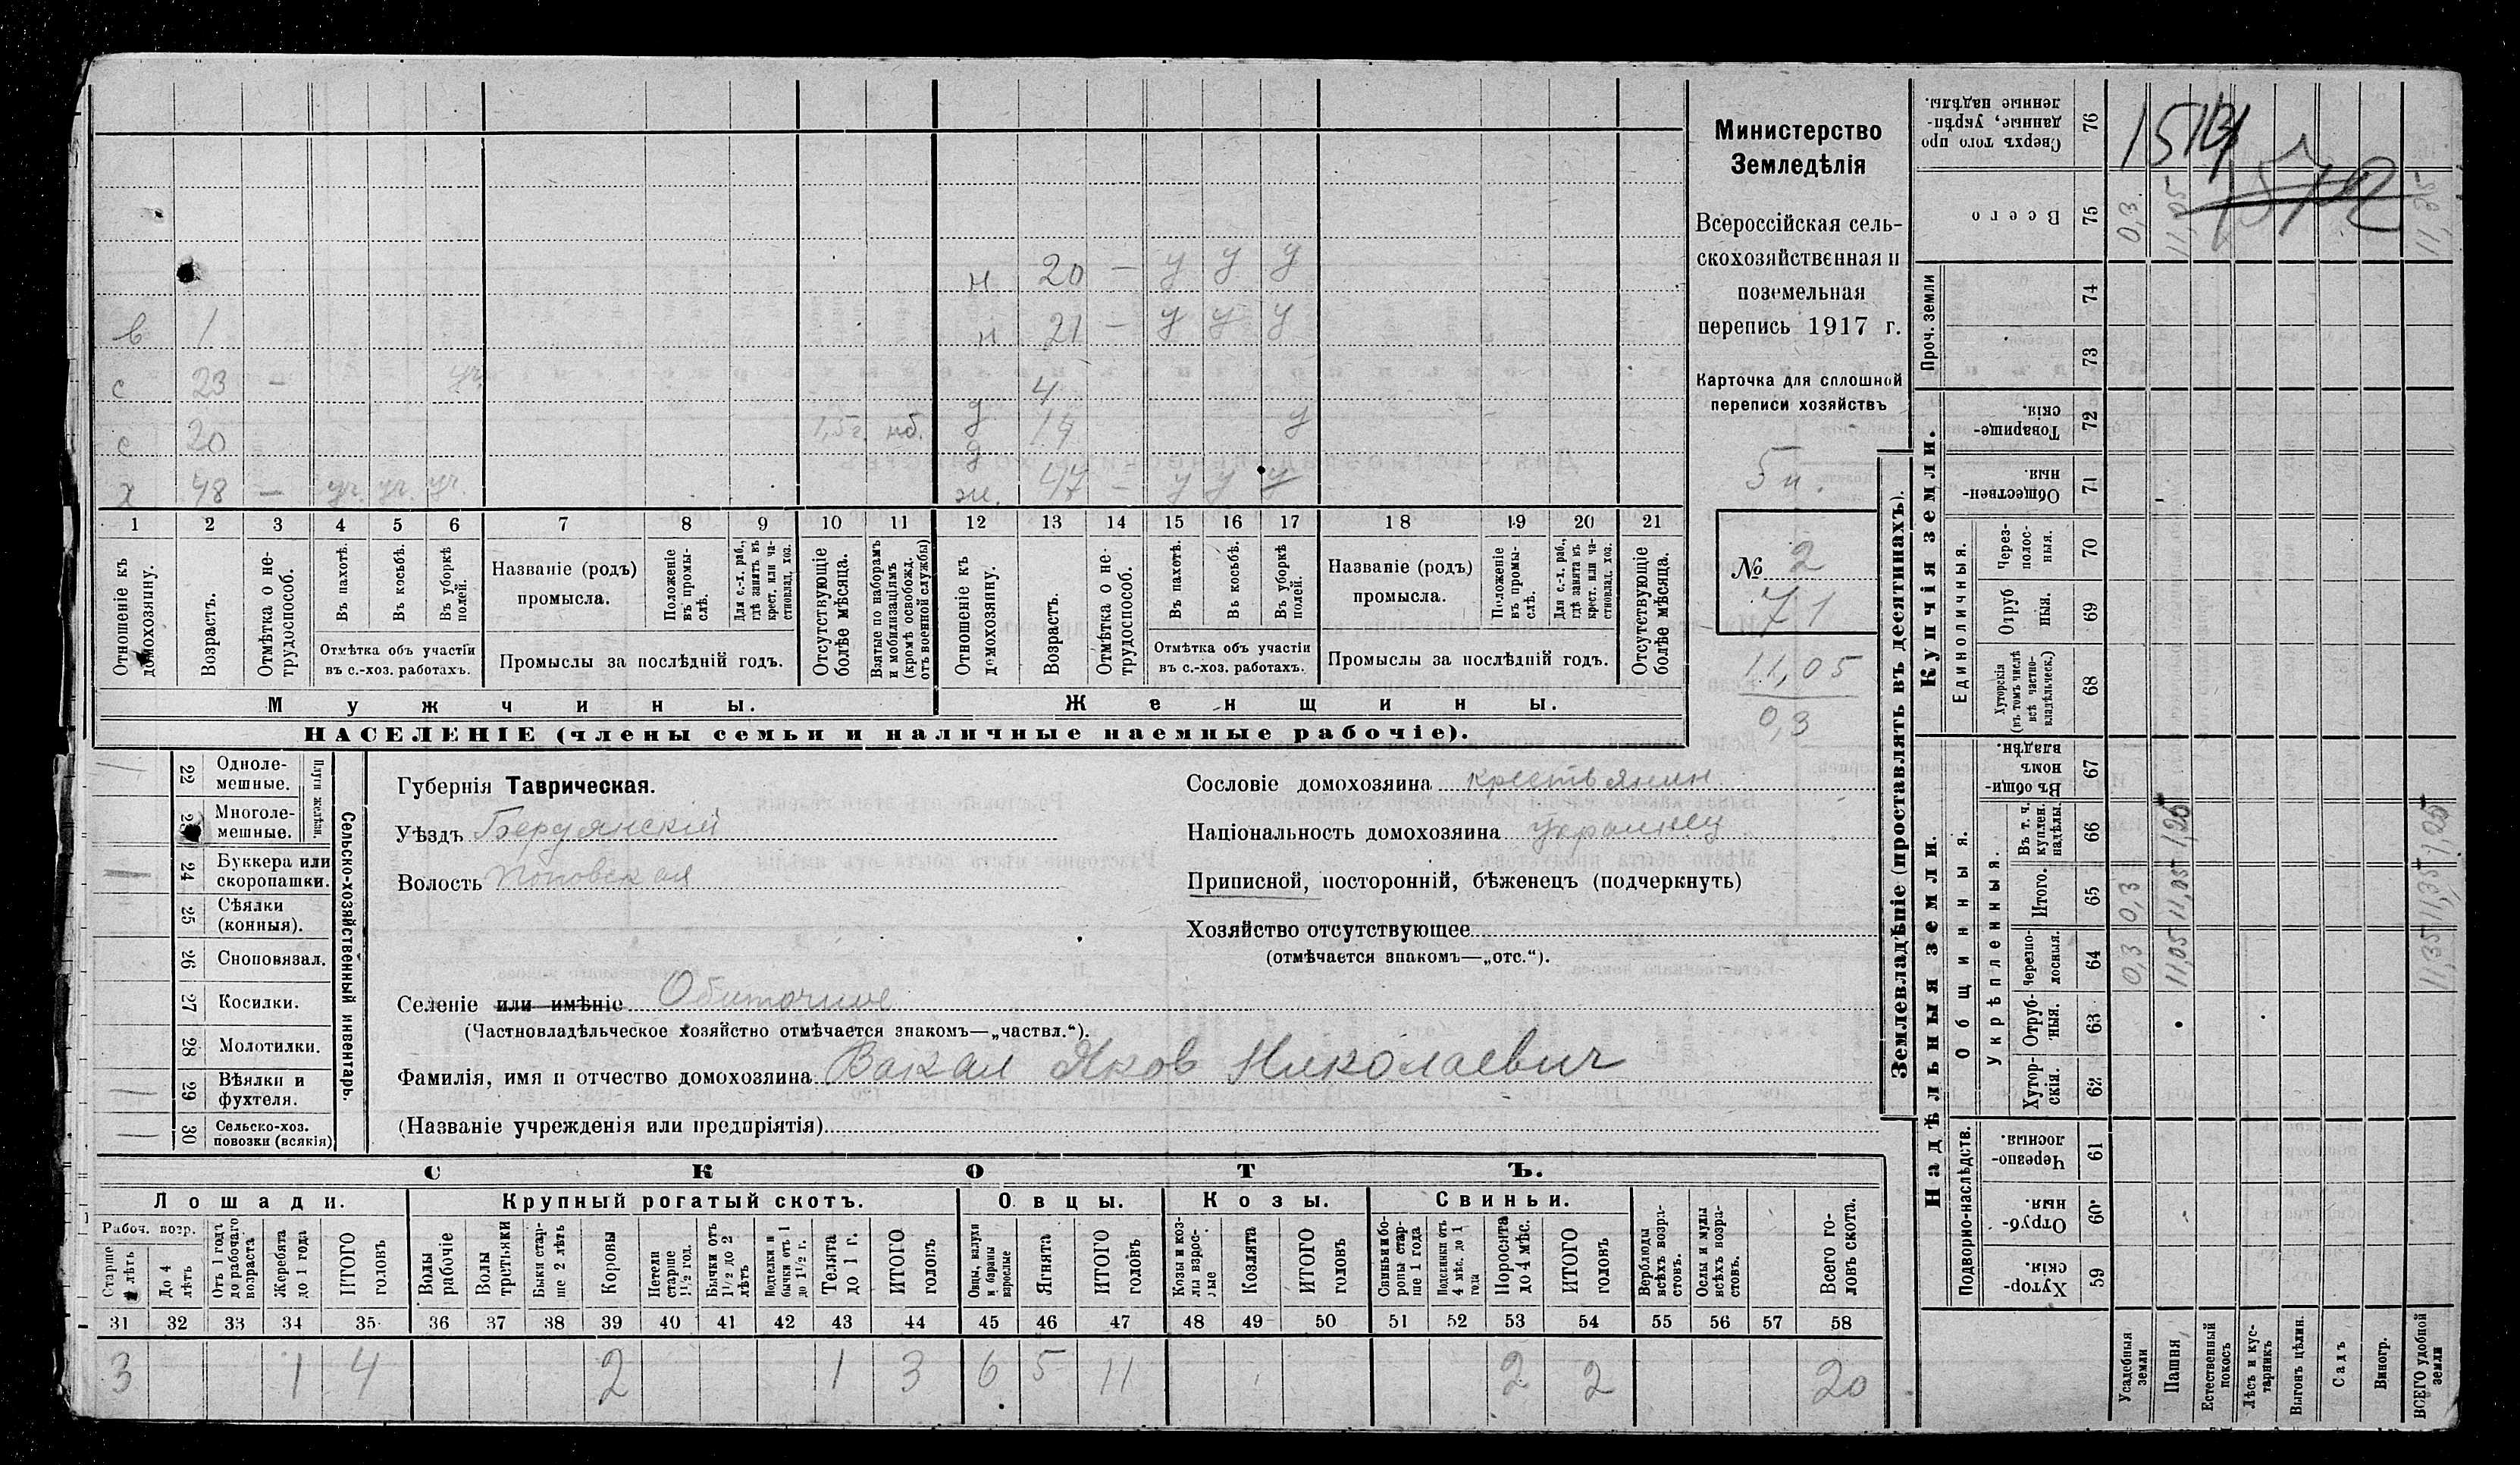 н 20 — у у у
в 1 н 21 — у у у
с 23 — уч. д 4
с 20 1,5 г. нб. д 14 у
х 48 — уч. уч. уч. ж. 47 — у у у
1 2 3 4 5 6 7 8 9 10 11 12 13 14 15 16 17 18 19 20 21
Отношеніе къ домохозяину.
Возрастъ.
Отмѣтка о нетрудоспособ.
Въ пахотѣ.
Въ косьбѣ.
Въ уборкѣ полей.
Отмѣтка объ участіи въ с.-хоз. работахъ.
Названіе (родъ) промысла.
Положеніе въ промыслѣ.
Для с.-х. раб., гдѣ занятъ въ крест. или частновлад. хоз.
Промыслы за послѣдній годъ.
Отсутствующіе болѣе мѣсяца.
Взятые по наборамъ и мобилизаціямъ (кромѣ освобожд. отъ военной службы)
Отношеніе къ домохозяину.
Возрастъ.
Отмѣтка о нетрудоспособ.
Въ пахотѣ.
Въ косьбѣ.
Въ уборкѣ полей.
Отмѣтка объ участіи въ с.-хоз. работахъ.
Названіе (родъ) промысла.
Положеніе въ промыслѣ.
Для с.-х. раб., гдѣ занята въ крест. или частновлад. хоз.
Промыслы за послѣдній годъ.
Отсутствующіе болѣе мѣсяца.
Мужчины. Женщины.
НАСЕЛЕНІЕ (члены семьи и наличные наемные рабочіе).
Министерство
Земледѣлія
Всероссійская сель-
скохозяйственная и
поземельная
перепись 1917 г.
Карточка для сплошной
переписи хозяйствъ
5 н.
№ 2
71
11,05
0,3
22 Одноле-
мешные.
23 Многоле-
мешные.
Плуги желѣзн.
24 Буккера или
скоропашки.
25 Сѣялки
(конныя).
26 Сноповязал.
27 Косилки.
28 Молотилки.
29 Вѣялки и
фухтеля.
30 Сельско-хоз.
повозки (всякія)
Сельско-хозяйственный инвентарь.
Губернія Таврическая.
Уѣздъ Бердянскій
Волость Поповская
Сословіе домохозяина крестьянин
Національность домохозяина украинец
Приписной, посторонній, бѣженецъ (подчеркнуть)
Хозяйство отсутствующее
(отмѣчается знакомъ—„отс.“).
Селеніе или имѣніе Обиточне
(Частновладѣльческое хозяйство отмѣчается знакомъ—„частвл.“).
Фамилія, имя и отчество домохозяина Вакал Яков Николаевич
(Названіе учрежденія или предпріятія)
СКОТЪ.
Лошади. Крупный рогатый скотъ. Овцы. Козы. Свиньи.
Рабоч. возр.
Старше 4 лѣтъ
До 4 лѣтъ
Отъ 1 годъ до рабочаго возраста
Жеребята до 1 года
ИТОГО головъ
Волы рабочіе
Волы третьяки
Быки старше 2 лѣтъ
Коровы
Нетели старше 1½ год.
Бычки отъ 1½ до 2 лѣтъ
Подтелки и бычки отъ 1 до 1½ г.
Телята до 1 г.
ИТОГО головъ
Овцы, валухи и бараны взрослые
Ягнята
ИТОГО головъ
Козы и козлы взрослые
Козлята
ИТОГО головъ
Свиньи и боровы старше 1 года
Подсвинки отъ 4 мѣс. до 1 года
Поросята до 4 мѣс.
ИТОГО головъ
Верблюды всѣхъ возрастовъ.
Ослы и мулы всѣхъ возрастовъ.
Всего головъ скота.
31 32 33 34 35 36 37 38 39 40 41 42 43 44 45 46 47 48 49 50 51 52 53 54 55 56 57 58
3 1 4 2 1 3 6 5 11 2 2 20
Землевладѣніе (проставлять въ десятинахъ).
Сверхъ того проданные, укрѣпленные надѣлы. 76
1514
1572
Всего 75 0,3 11,05 11,35
Проч. земли 74
73
Купчія земли.
Товарищескія. 72
Общественныя. 71
Единоличныя.
Черезполосныя. 70
Отрубныя. 69
Хуторскія (въ томъ числѣ всѣ частновладѣльческ.) 68
Надѣльныя земли.
Общинныя.
Въ общинномъ владѣн. 67
Укрѣпленныя.
Въ т. ч. куплен. надѣлы. 66 1,25 1,25
Итого. 65 0,3 11,05 11,35
Черезполосныя. 64 0,3 11,05 11,35
Отрубныя. 63
Хуторскія. 62
Подворно-наслѣдств.
Черезполосныя. 61
Отрубныя. 60
Хуторскія. 59
Усадебныя земли
Пашня
Естественный покосъ
Лѣсъ и кустарникъ
Выгонъ цѣлин.
Садъ
Виногр.
ВСЕГО удобной земли